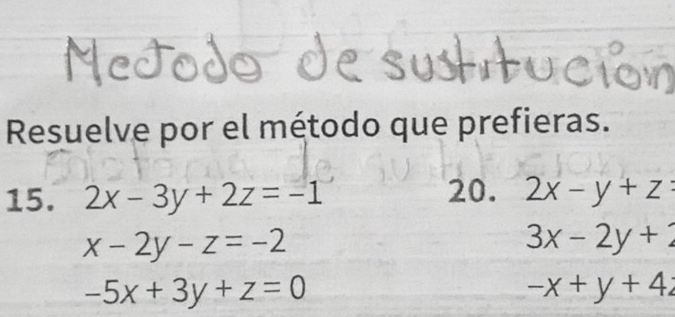 Metodo de sustitución
Resuelve por el método que prefieras.
15. 2x – 3y + 2z = –1
x – 2y – z = –2
–5x + 3y + z = 0
20. 2x – y + z =
3x – 2y + 2
–x + y + 4z